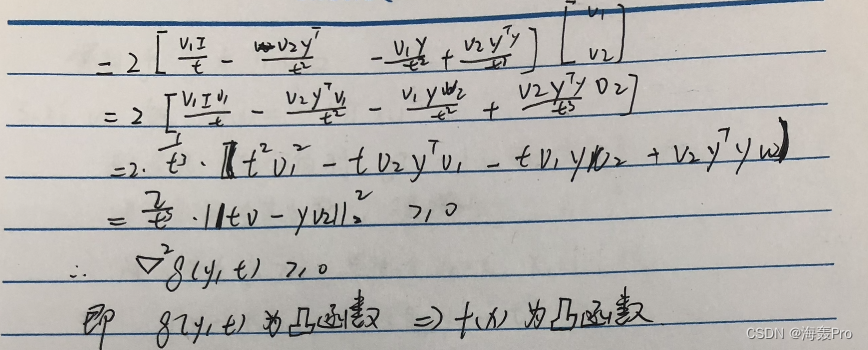 = 2 [ v₁I/t - v₂yᵀ/t² - v₁y/t² + v₂yᵀy/t³ ] [ v₁ v₂ ]
= 2 [ v₁Iv₁/t - v₂yᵀv₁/t² - v₁yv₂/t² + v₂yᵀy v₂/t³ ]
= 2· 1/t³ · ( t²v₁² - tv₂yᵀv₁ - tv₁yv₂ + v₂yᵀyv₂ )
= 2/t³ · ||tv - yv₂||₂² ≥ 0
∴ ∇²g(y,t) ≥ 0
即 g(y,t) 为凸函数 => f(x) 为凸函数
CSDN @海轰Pro